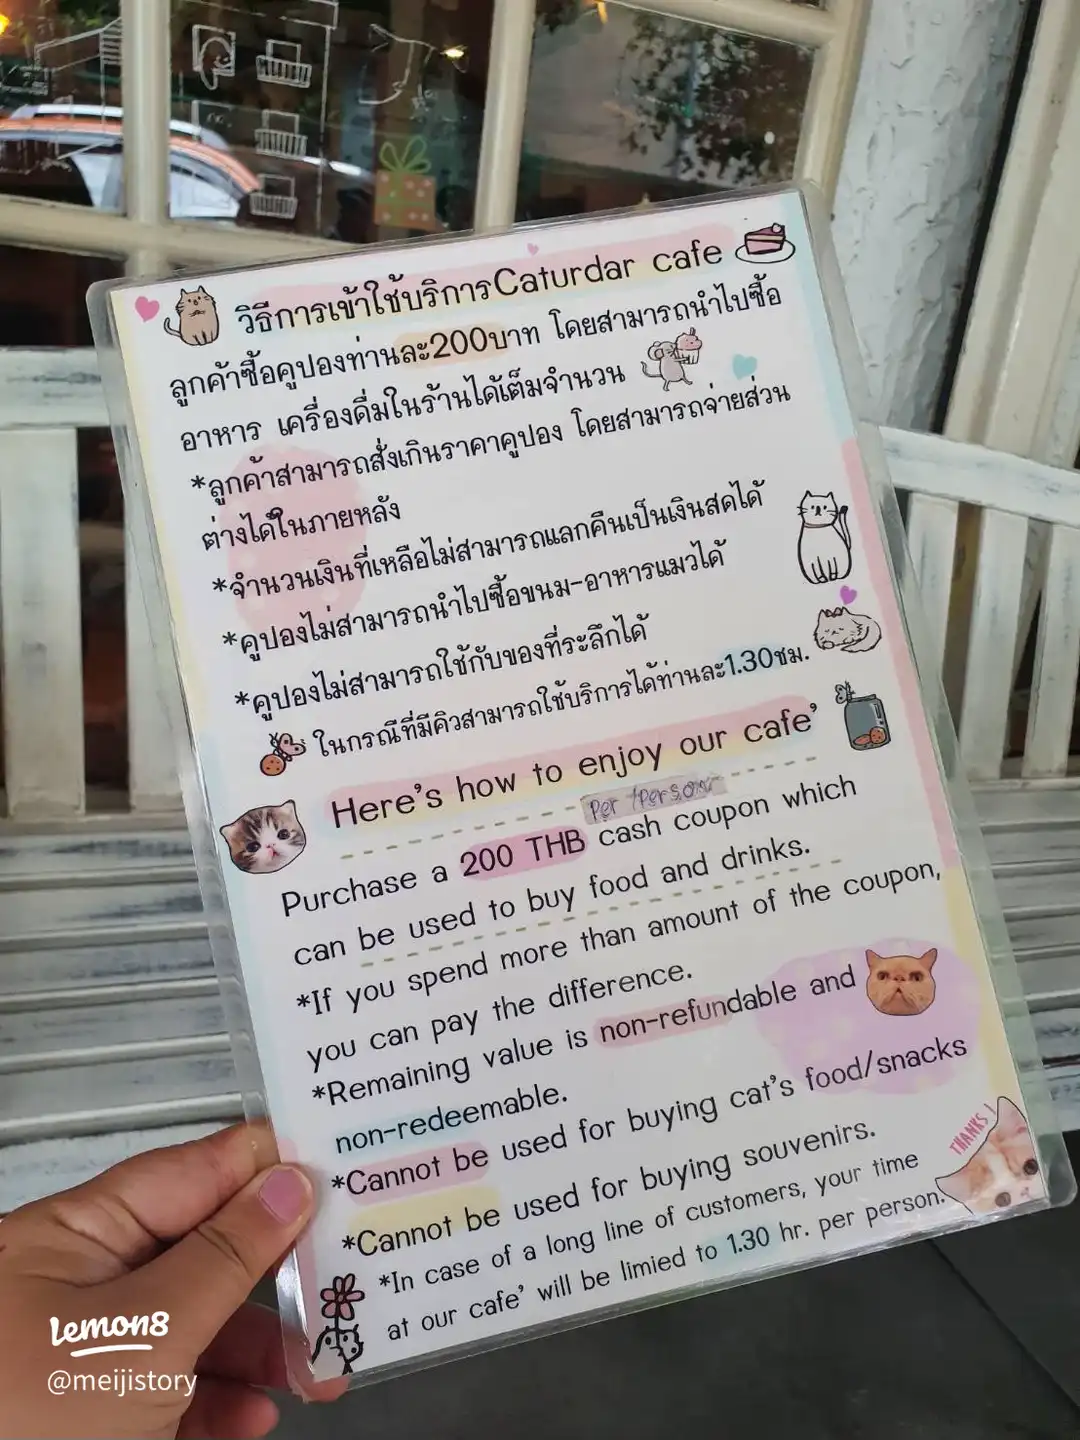 วิธีการเข้าใช้บริการCaturdar cafe
ลูกค้าซื้อคูปองท่านละ200บาท โดยสามารถนำไปซื้อ
อาหาร เครื่องดื่มในร้านได้เต็มจำนวน
*ลูกค้าสามารถสั่งเกินราคาคูปอง โดยสามารถจ่ายส่วน
ต่างได้ในภายหลัง
*จำนวนเงินที่เหลือไม่สามารถแลกคืนเป็นเงินสดได้
*คูปองไม่สามารถนำไปซื้อขนม-อาหารแมวได้
*คูปองไม่สามารถใช้กับของที่ระลึกได้
ในกรณีที่มีคิวสามารถใช้บริการได้ท่านละ1.30ชม.
Here's how to enjoy our cafe'
Per 1person
Purchase a 200 THB cash coupon which
can be used to buy food and drinks.
*If you spend more than amount of the coupon,
you can pay the difference.
*Remaining value is non-refundable and
non-redeemable.
*Cannot be used for buying cat's food/snacks
*Cannot be used for buying souvenirs.
*In case of a long line of customers, your time
at our cafe' will be limied to 1.30 hr. per person.
THANKS!
lemon8
@meijistory